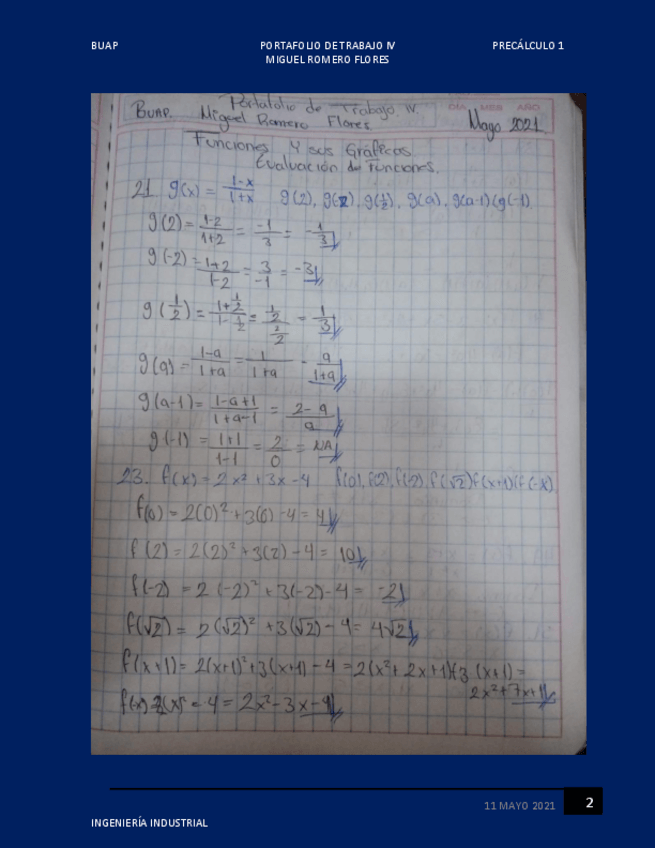 BUAP PORTAFOLIO DE TRABAJO IV PRECÁLCULO 1
MIGUEL ROMERO FLORES
Portafolio de Trabajo IV. DIA MES AÑO
BUAP. Miguel Romero Flores. Mayo 2021
Funciones y sus Gráficos
Evaluación de Funciones.
21 g(x) = 1-x/1+x g(2), g(-2), g(1/2), g(a), g(a-1) (g(-1)
g(2) = 1-2/1+2 = -1/3 = -1/3
g(-2) = 1+2/1-2 = 3/-1 = -3
g(1/2) = 1+1/2/1-1/2 = 1/2/2/2 = 1/3
g(a) = 1-a/1+a = 1/1+a - a/1+a
g(a-1) = 1-a+1/1+a-1 = 2-a/a
g(-1) = 1+1/1-1 = 2/0 = NA
23. f(x) = 2x² + 3x - 4 f(0), f(2), f(-2), f(√2) f(x+1) (f(-x)
f(0) = 2(0)² + 3(0) - 4 = 4
f(2) = 2(2)² + 3(2) - 4 = 10
f(-2) = 2(-2)² + 3(-2) - 4 = -2
f(√2) = 2(√2)² + 3(√2) - 4 = 4√2
f(x+1) = 2(x+1)² + 3(x+1) - 4 = 2(x² + 2x + 1) + 3(x+1) =
2x² + 7x + 1
- 4 = 2x² - 3x - 4
11 MAYO 2021 2
INGENIERÍA INDUSTRIAL